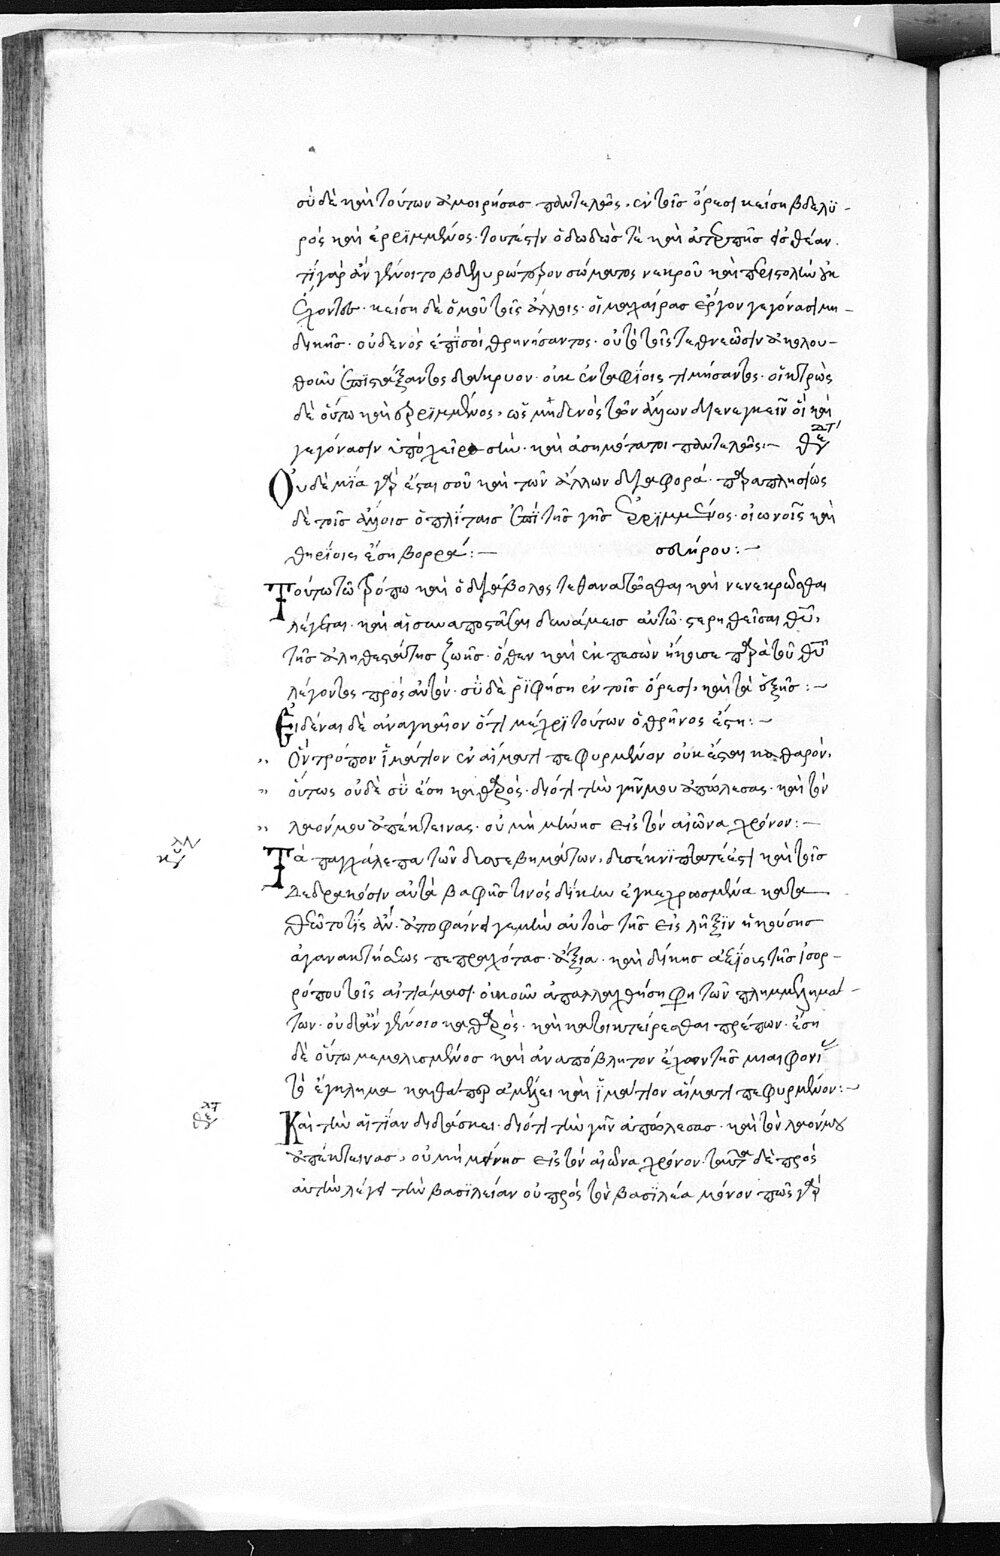 σὺ δὲ καὶ τούτων ἀμοιρήσας παντελῶς, ἐν τοῖς ὄρεσι κείσῃ βδελυ-
ρὸς καὶ ἐρϊμμένος· τουτέστιν ὀδωδώς τὲ καὶ ἀτερπὴς εἰσθέαν.
τί γὰρ ἂν γένοιτο βδελυρώτερον σώματος νεκροῦ καὶ
ἔχοντος· κείσῃ δὲ ὁμοῦ τοῖς ἄλλοις· οἳ μαχαίρας ἔργον γεγόνασι μη-
δικῆς· οὐδενὸς ἐπίσοι θρηνήσαντος· οὐ τὸ τοῖς τεθνεῶσιν ἀκόλου-
θον ἐπιστάξαντος δάκρυον· οὐκ ἐνταφίοις τιμήσαντος· οἰκτρῶς
δὲ οὕτω καὶ ἐρϊμμένος, ὡς μηδενὸς τῶν ἄλλων διενεγκεῖν οἳ καὶ
γεγόνασιν ὑπὸ χεῖρα σὴν· καὶ ἀσημότατοι παντελῶς:
Οὐδὲ μία γὰρ ἔσται σοῦ καὶ τῶν ἄλλων διαφορά· παραπλησίως
δὲ τοῖς ἄλλοις ὁπλίταις ἐπὶ τῆς γῆς ἐρϊμμένος· οἰωνοῖς καὶ
θηρίοις ἔσῃ βορρά:— σευήρου:—
Τούτω τῶ τρόπω καὶ ὁ διάβολος τεθανατῶσθαι καὶ νενεκρῶσθαι
λέγεται· καὶ αἱ συναποστᾶσαι δυνάμεις αὐτῶ· στερηθεῖσαι θυ,
τῆς ἀληθεστάτης ζωῆς· ὅθεν καὶ ἐκπεσὼν ἤκουσε παρὰ τοῦ θυ
λέγοντος πρὸς αὐτὸν· σὺ δὲ ῥιφήσῃ ἐν τοῖς ὄρεσι, καὶ τὰ ἑξῆς:—
Εἰδέναι δὲ ἀναγκαῖον ὅτι μέχρι τούτων ὁ θρῆνος ἐστι:—
Ὃν τρόπον ἱμάτιον ἐν αἵματι πεφυρμένον οὐκ ἔσται καθαρόν,
οὕτως οὐδὲ σὺ ἔσῃ καθαρὸς· διότι τὴν γῆν μου ἀπώλεσας· καὶ τὸν
λαόν μου ἀπέκτεινας· οὐ μὴ μείνῃς εἰς τὸν αἰῶνα χρόνον:—
Τὰ παγχάλεπα τῶν δυσσεβημάτων, καὶ τοῖς
δεδρακόσιν αὐτὰ βαφῆς τινὸς δίκην ἐγκεχρωσμένα κατα
θεῶτο τίς ἂν· ἀποφαίνει γε μὴν αὐτοὺς τῆς εἰς λῆξιν ἡκούσης
ἀγανακτήσεως πεπραχότας ἄξια· καὶ δίκης ἀξίους τῆς ἰσορ-
ρόπου τοῖς αἰτιάμασι· οὐκοῦν ἀπαλλαχθήσῃ φησι τῶν πλημμελημά-
των· οὐδ' ἂν γένοιο καθαρὸς· καὶ κατοικτείρεσθαι πρέπων· ἔσῃ
δὲ οὕτω μεμολυσμένος καὶ ἀναπόβλητον ἔχων τῆς μιαιφονί
τὸ ἔγκλημα καθάπερ ἀμέλει καὶ ἱμάτιον αἵματι πεφυρμένον:—
Καὶ τὴν αἰτίαν διδάσκει· διότι τὴν γῆν ἀπώλεσας· καὶ τὸν λαόν μου
ἀπέκτεινας, οὐ μὴ μείνῃς εἰς τὸν αἰῶνα χρόνον· ταῦτα δὲ πρὸς
αὐτὴν λέγει τὴν βασιλείαν οὐ πρὸς τὸν βασιλέα μόνον πῶς γὰρ